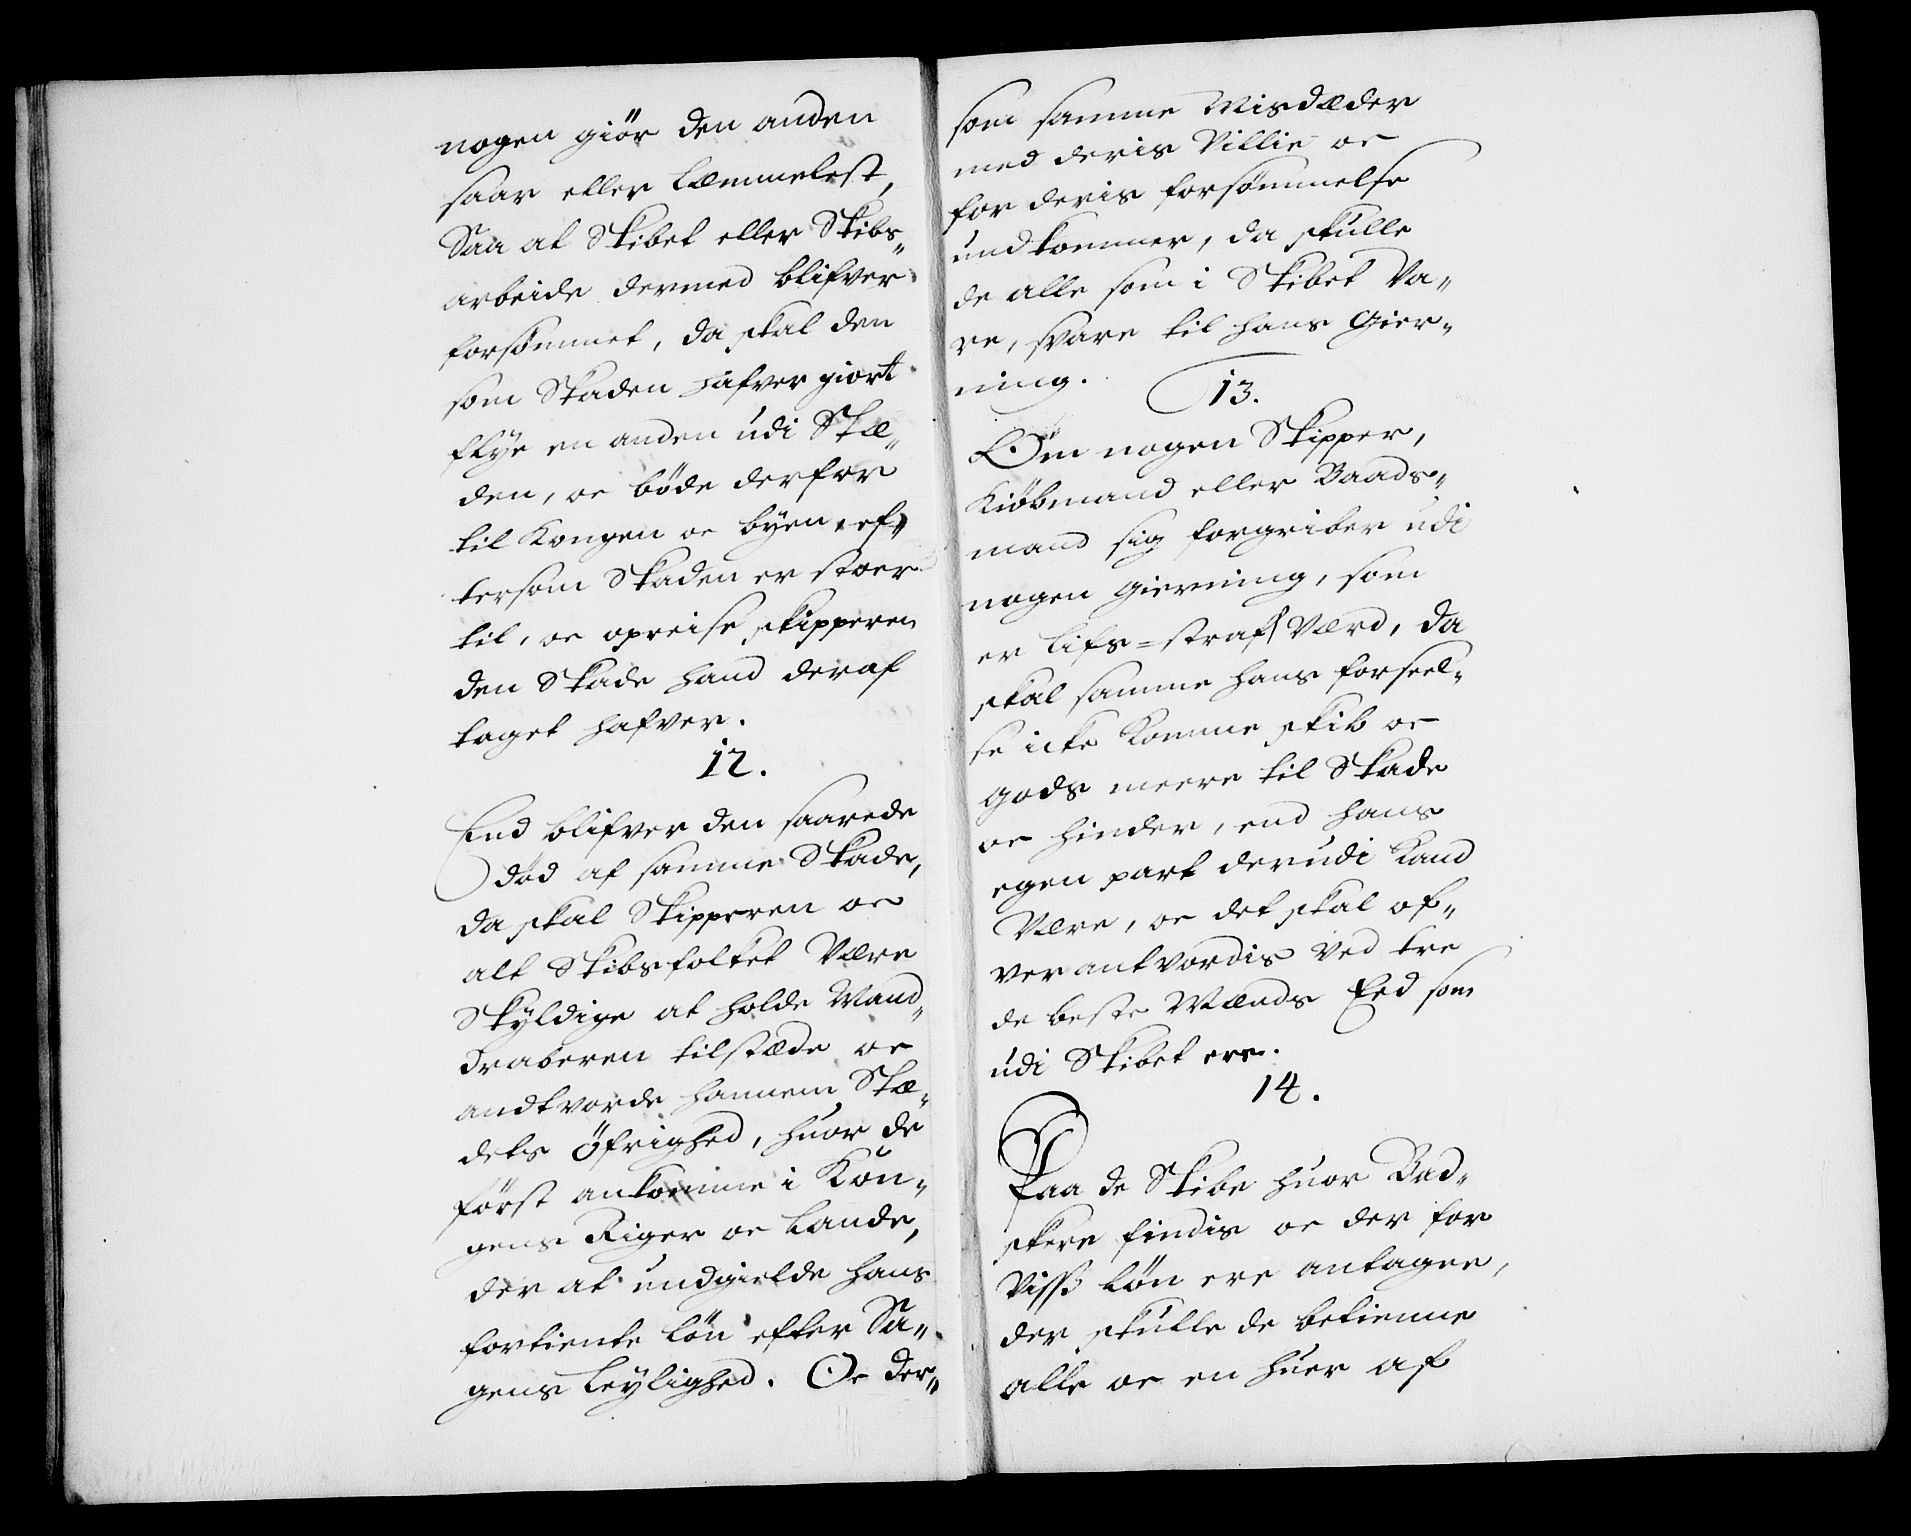 nogen giör den anden
saar eller Læmmelest,
Saa at Skibet eller Skibs„
arbeide dermed blifver
forsömmet, da skal den
som Skaden hafver giort
flÿe en anden udi Stæ„
den, oc böde derfor
til Kongen oc byen, ef„
tersom Skaden er stoer
til, oc opreise skipperen
den Skade hand deraf
taget hafver.
12.
End blifver den saarede
död af samme Skade,
da skal Skipperen oc
alt Skibsfolket Være
Skÿldige at holde Mand„
draberen tilstæde oc
andtvorde hannem Stæ„
dets Öfrighed, huor de
först ankomme i Kon„
gens Riger oc Lande,
der at undgielde hans
fortiente Lön efter Sa„
gens Leÿlighed. Oc der„
som samme Misdæder
med deris Villie oc
for deris forsömmelse
undkommer, da skulle
de alle som i Skibet Va„
re, svare til hans Gier„
ning.
13.
Om nogen Skipper,
Kiöbmand eller Baads„
mand sig forgriber udi
nogen Gierning, som
er Lifs=straf Værd, da
skal samme hans forseel„
se icke Komme skib oc
gods meere til Skade
oc hinder, end hans
egen part derudi Kand
Være, oc det skal of„
verantvordis ved tre
de beste Mænds Eed som
udi Skibet ere.
14.
Paa de Skibe huor Bad„
skere findis oc der for
Viss Lön ere antagne,
der skulle de betienne
alle oc en huer af